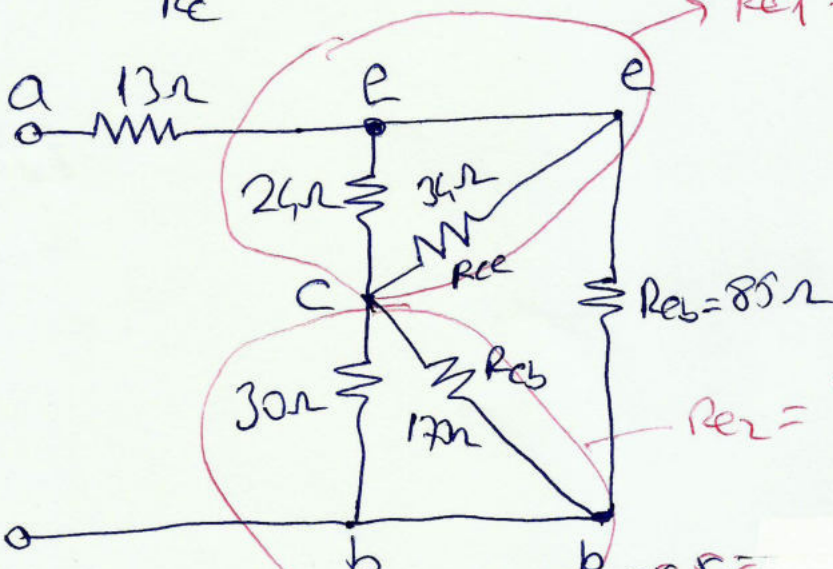 Re
Re1 =
a 13Ω e e
24Ω 34Ω
Rce
c Reb=85Ω
30Ω Rcb
170Ω Re2 =
b b